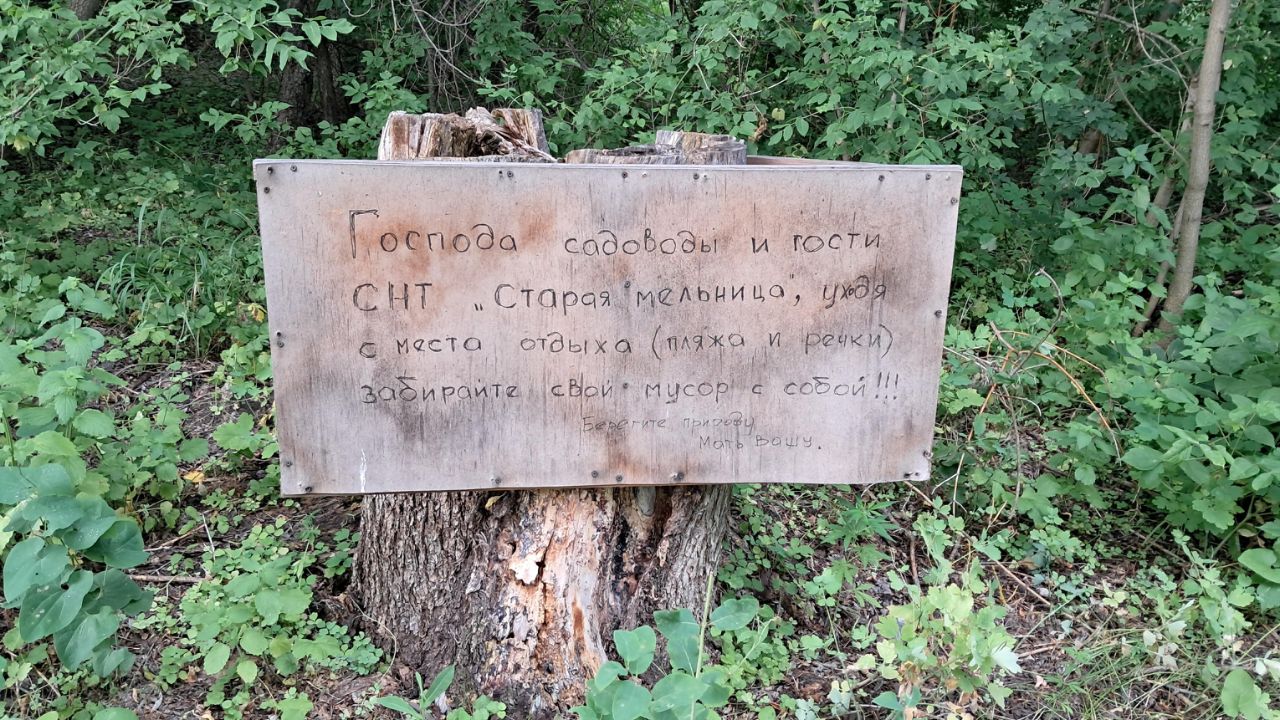 Господа садоводы и гости
СНТ „Старая мельница", уходя
с места отдыха (пляжа и речки)
забирайте свой мусор с собой!!!
Берегите природу
Мать Вашу.